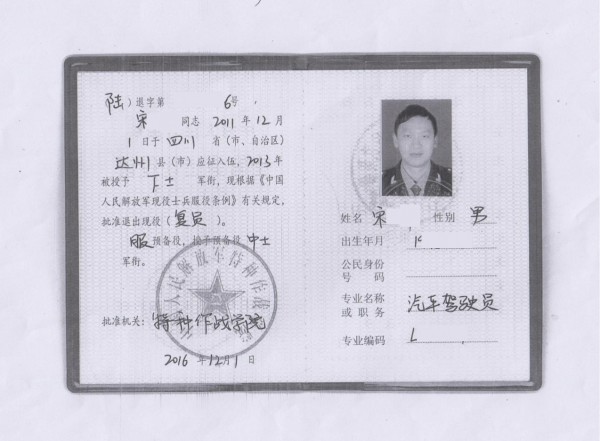 陆)退字第 6号
宋 同志 2011年12月
1日于四川省(市、自治区)
达州县(市)应征入伍,2013年
被授予 下士 军衔,现根据《中国
人民解放军现役士兵服役条例》有关规定,
批准退出现役(复员)。
服预备役,授予预备役中士
军衔。
批准机关:特种作战学院
2016年12月1日
姓名 宋 性别 男
出生年月
公民身份
号码
专业名称 汽车驾驶员
或职务
专业编码